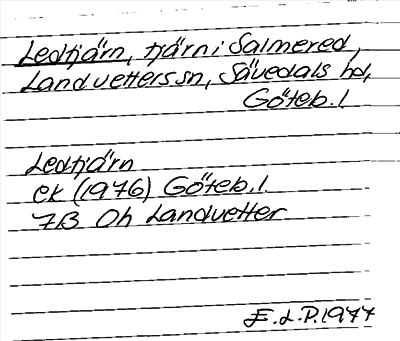 Ledtjärn, tjärn i Salmered,
Landvetters sn, Sävedals hd,
Göteb. l
Ledtjärn
ek (1976) Göteb. l.
7B Oh Landvetter
E.L.P. 1977